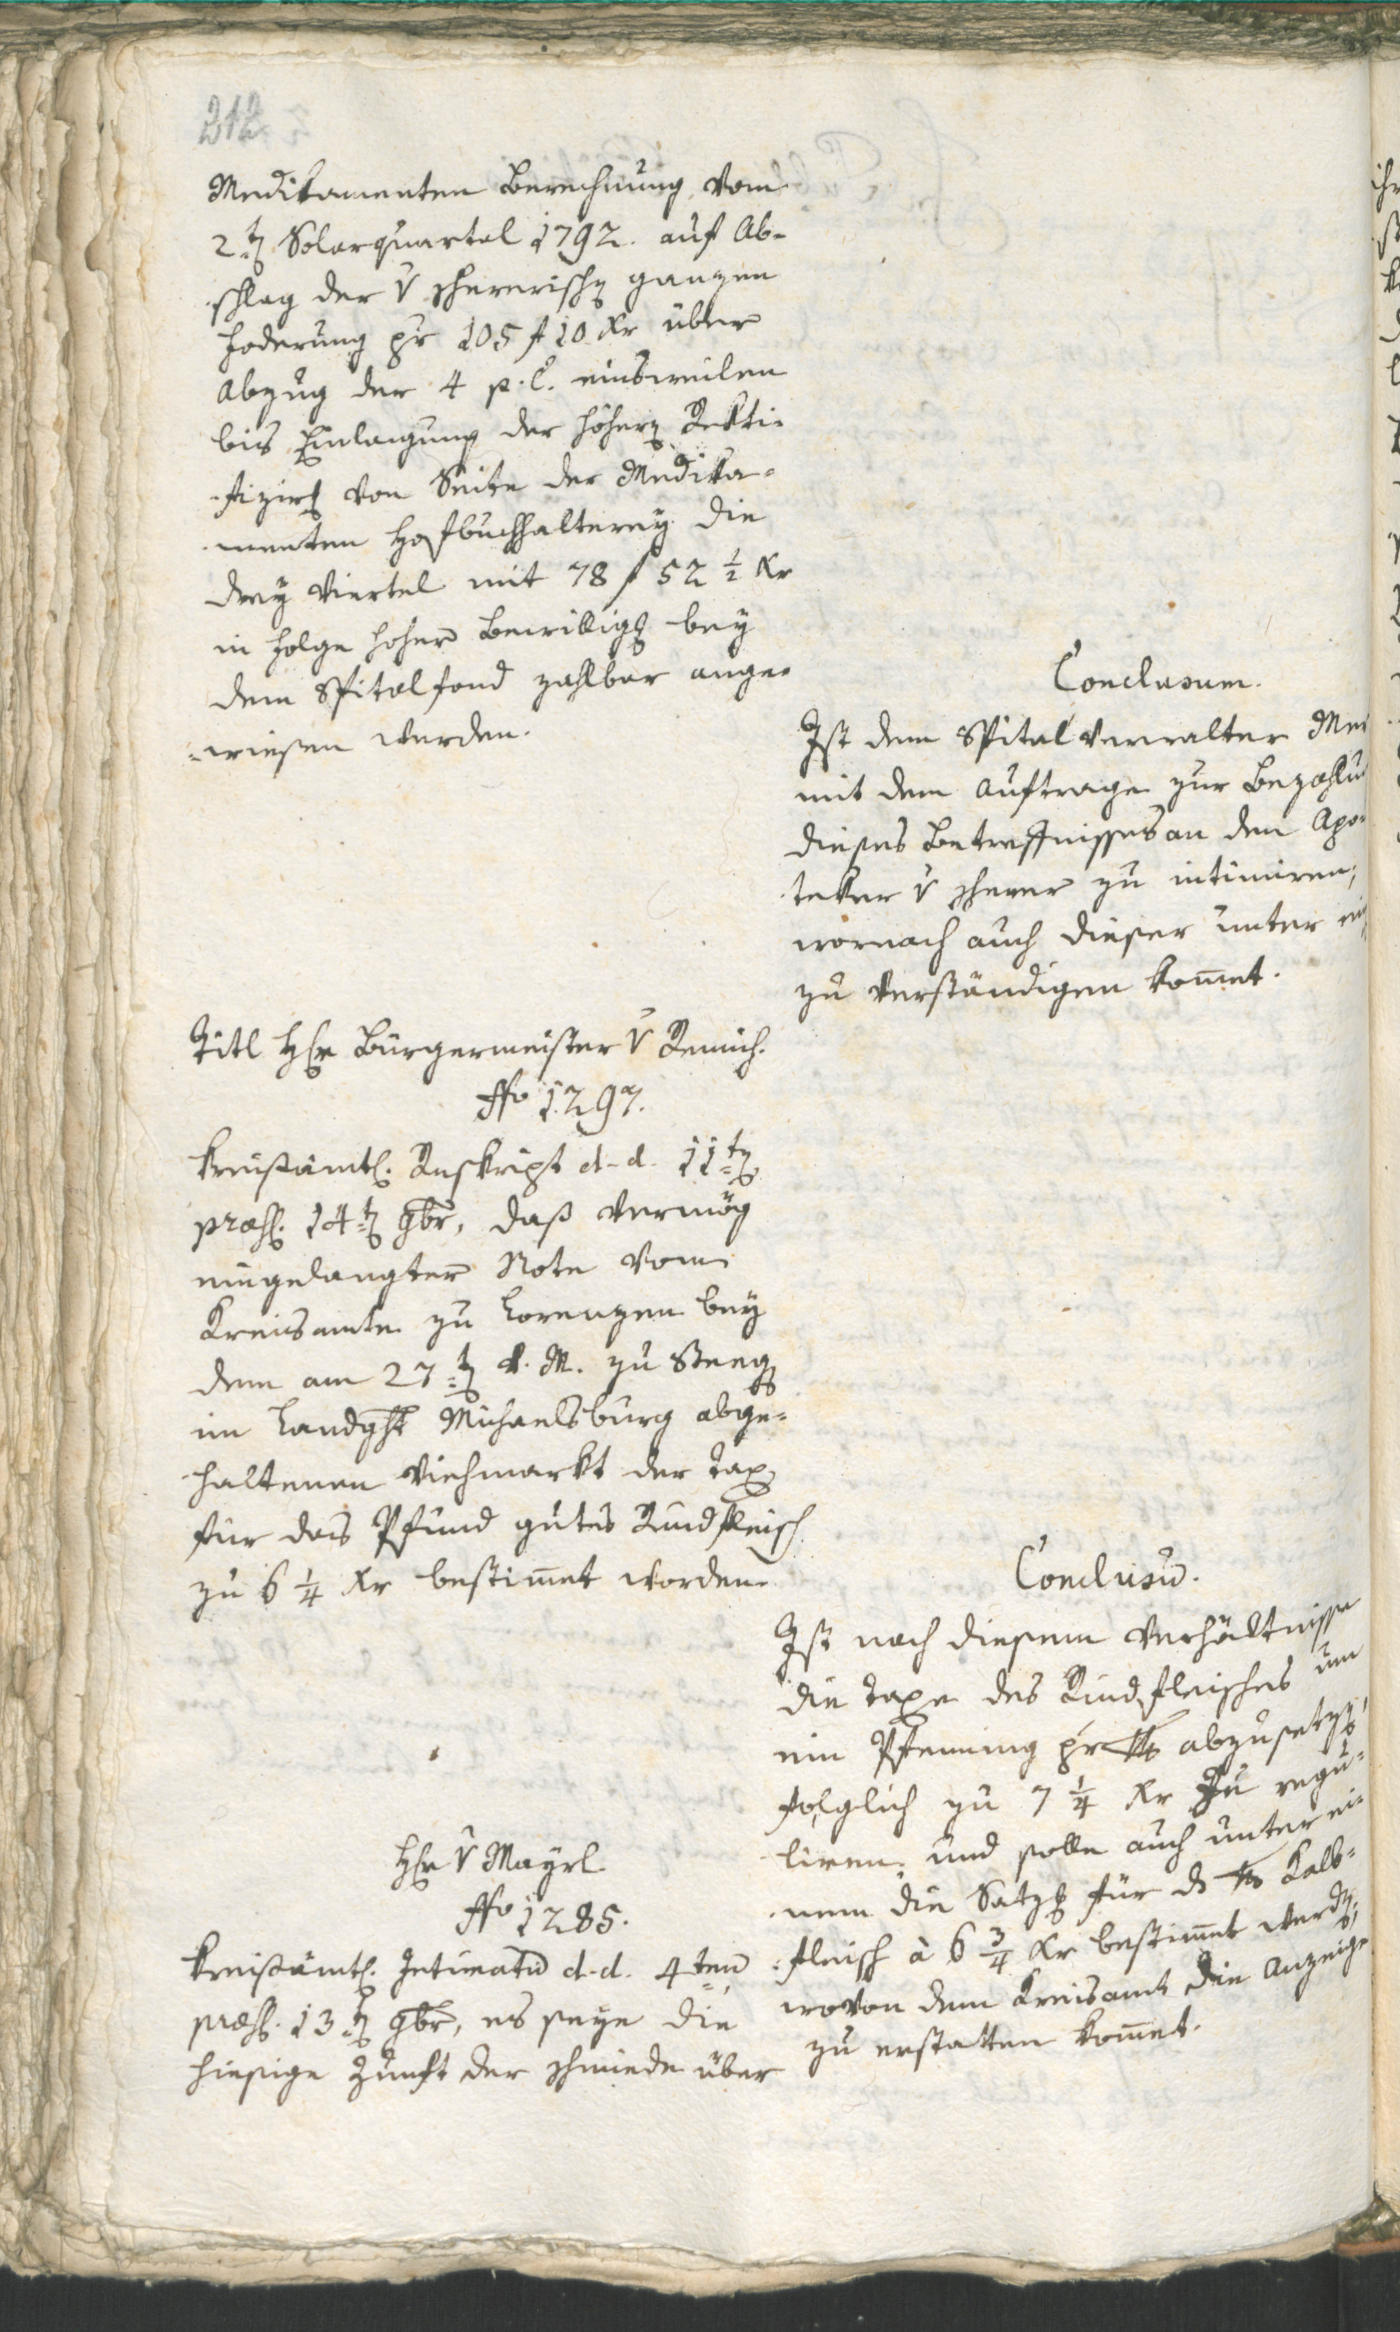 212
Medikamenten Berechnung vom
2t. Solarquartal 1792. auf Ab-
schlag der v Scherrerisch. ganzen
Foderung pr 105 f 10 Kr über
Abzug der 4 p. C. einsweilen
bis Einlangung der höher. Rekti-
fizir. von Seite der Medika-
menten Hofbuchhalterey die
drey Viertel mit 78 f 52 1/2 Kr
in Folge hoher Bewillig. bey
dem Spitalfond zahlbar ange-
wiesen werden.
Conclusum.
Ist dem Spitalverwalter
mit dem Auftrage zur Bezahlu
dieses Betreffnisses an den Apo-
teker v Scherer zu intimiren,
wornach auch dieser unter ei
zu verständigen kom̄et.
Titl Hr Bürgermeister v Remich.
No 1297.
Kreisämtl. Reskript d. d. 11t.
præs. 14t. 9br, daß vermög
eingelangter Note vom
Kreisamte zu Lorenzen bey
dem am 27t. v. M. zu Steeg
im Landght Michaelsburg abge-
haltenen Viehmarkt der Tax
für das Pfund gutes Rindfleisch
zu 6 1/4 Kr bestim̄et worden.
Conclusū.
Ist nach diesem Verhältnisse
die Taxe des Rindfleisches um
ein Pfenning pr ℔ abzusetz.,
folglich zu 7 1/4 Kr zu regu-
liren. und solle auch unter ei-
nem die Satz. für d ℔ Kalb-
fleisch à 6 3/4 Kr bestim̄et werd.,
wovon dem Kreisamt die Anzeige
zu erstatten kom̄et.
Hr v Mayrl
No 1285.
Kreisämtl. Intimatū d. d. 4ten
præs. 13t. 9br, es seye die
hiesige Zunft der Schmiede über